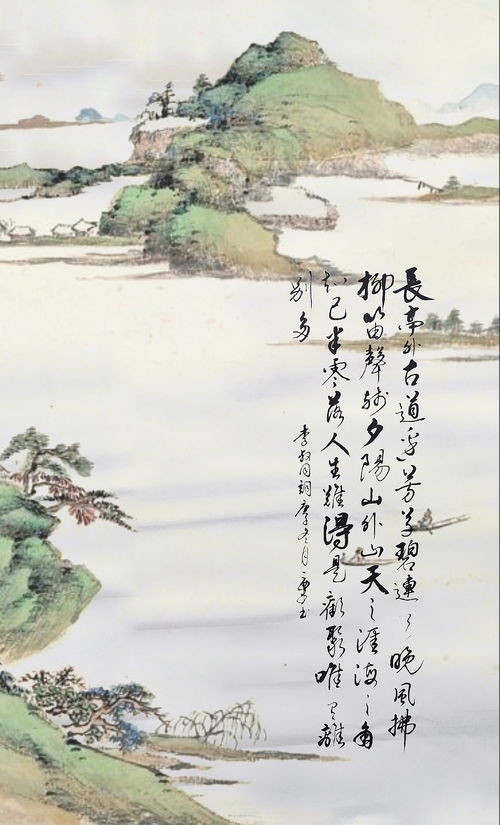 長亭外古道邊芳草碧連天晚風拂
柳笛聲殘夕陽山外山天之涯海之角
知己半零落人生難得是歡聚唯有離
別多
李叔同詞冬月書